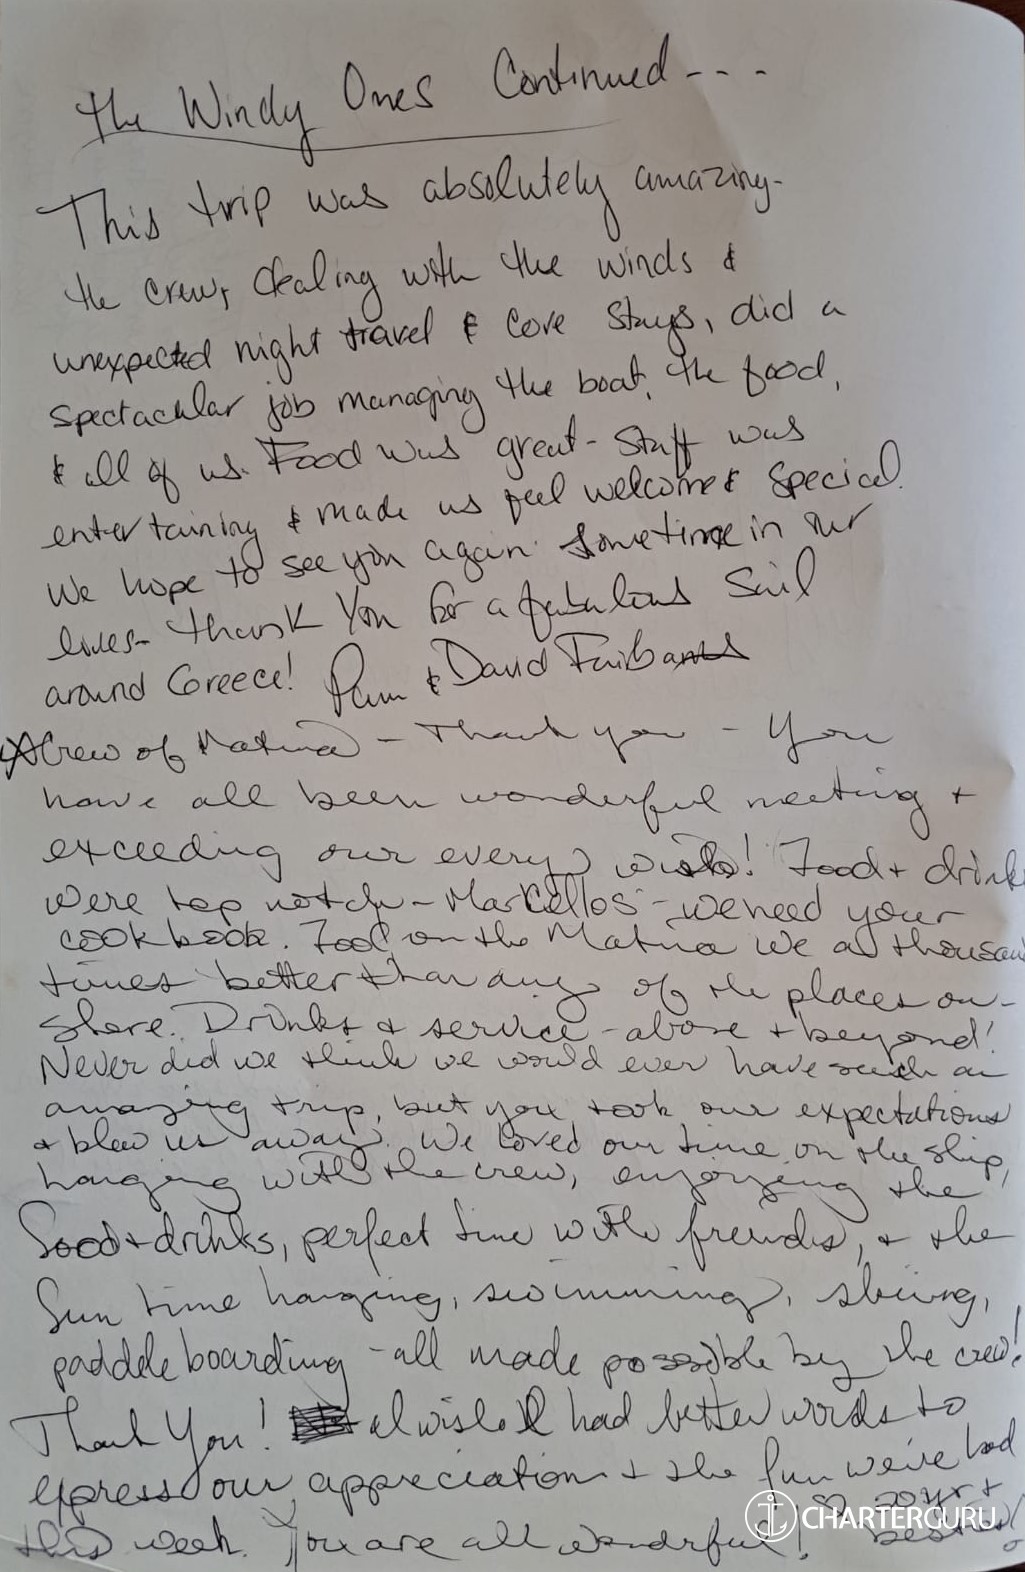 The Windy Ones Continued - - -
This trip was absolutely amazing-
the crew, dealing with the winds &
unexpected night travel & cove stays, did a
spectacular job managing the boat, the food,
& all of us. Food was great - Staff was
entertaining & made us feel welcome & special.
We hope to see you again sometime in our
lives- Thank You for a fabulous Sail
around Greece! Pam & David Fairbanks
Crew of Matina - Thank you - You
have all been wonderful meeting +
exceeding our every wish! Food + drink
were top notch - Marcellos - we need your
cookbook. Food on the Matina we a thousand
times better than any of the places on-
shore. Drinks + service - above + beyond!
Never did we think we would ever have such an
amazing trip, but you took our expectations
+ blew us away. We loved our time on the ship,
hanging with the crew, enjoying the
food + drinks, perfect time with friends, + the
Sun time hanging, swimming, skiing,
paddle boarding - all made possible by the crew!
Thank You! I wish I had better words to
express our appreciation + the fun we've had
this week. You are all wonderful!
CHARTERGURU